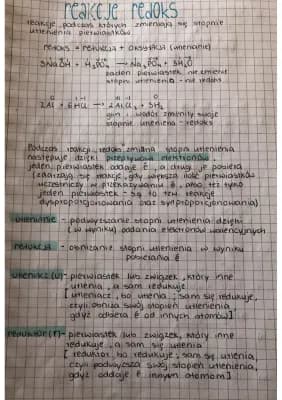 reakcje redoks
reakcje, podczas których zmieniają się stopnie
utlenienia pierwiastków
redoks = redukcja + oksydacja (utlenianie)
3NaOH + H₃PO₄ → Na₃PO₄ + 3H₂O
żaden pierwiastek nie zmienił
stopni utlenienia - nie redoks
0 I -I III -I 0
2Al + 6HCl → 2AlCl₃ + 3H₂
glin i wodór zmieniły swoje
stopnie utlenienia - redoks
Podczas reakcji redoks zmiana stopni utlenienia
następuje dzięki przepływowi elektronów
jeden pierwiastek oddaje ē, a drugi je pobiera
(zdarzają się reakcje, gdy większa ilość pierwiastków
uczestniczy w przekazywaniu ē, albo też tylko
jeden pierwiastek - są to tzw. reakcje
dysproporcjonowania oraz synproporcjonowania)
utlenianie - podwyższanie stopni utlenienia dzięki
(w wyniku) oddania elektronów walencyjnych
redukcja - obniżanie stopni utlenienia w wyniku
pobierania ē
utleniacz (u) - pierwiastek lub związek, który inne
utlenia, a sam redukuje
[utleniacz, bo utlenia; sam się redukuje,
czyli obniża swój stopień utlenienia,
gdyż odbiera ē od innych atomów]
reduktor (r) - pierwiastek lub związek, który inne
redukuje, a sam się utlenia
[reduktor, bo redukuje; sam się utlenia,
czyli podwyższa swój stopień utlenienia,
gdyż oddaje ē innym atomom]